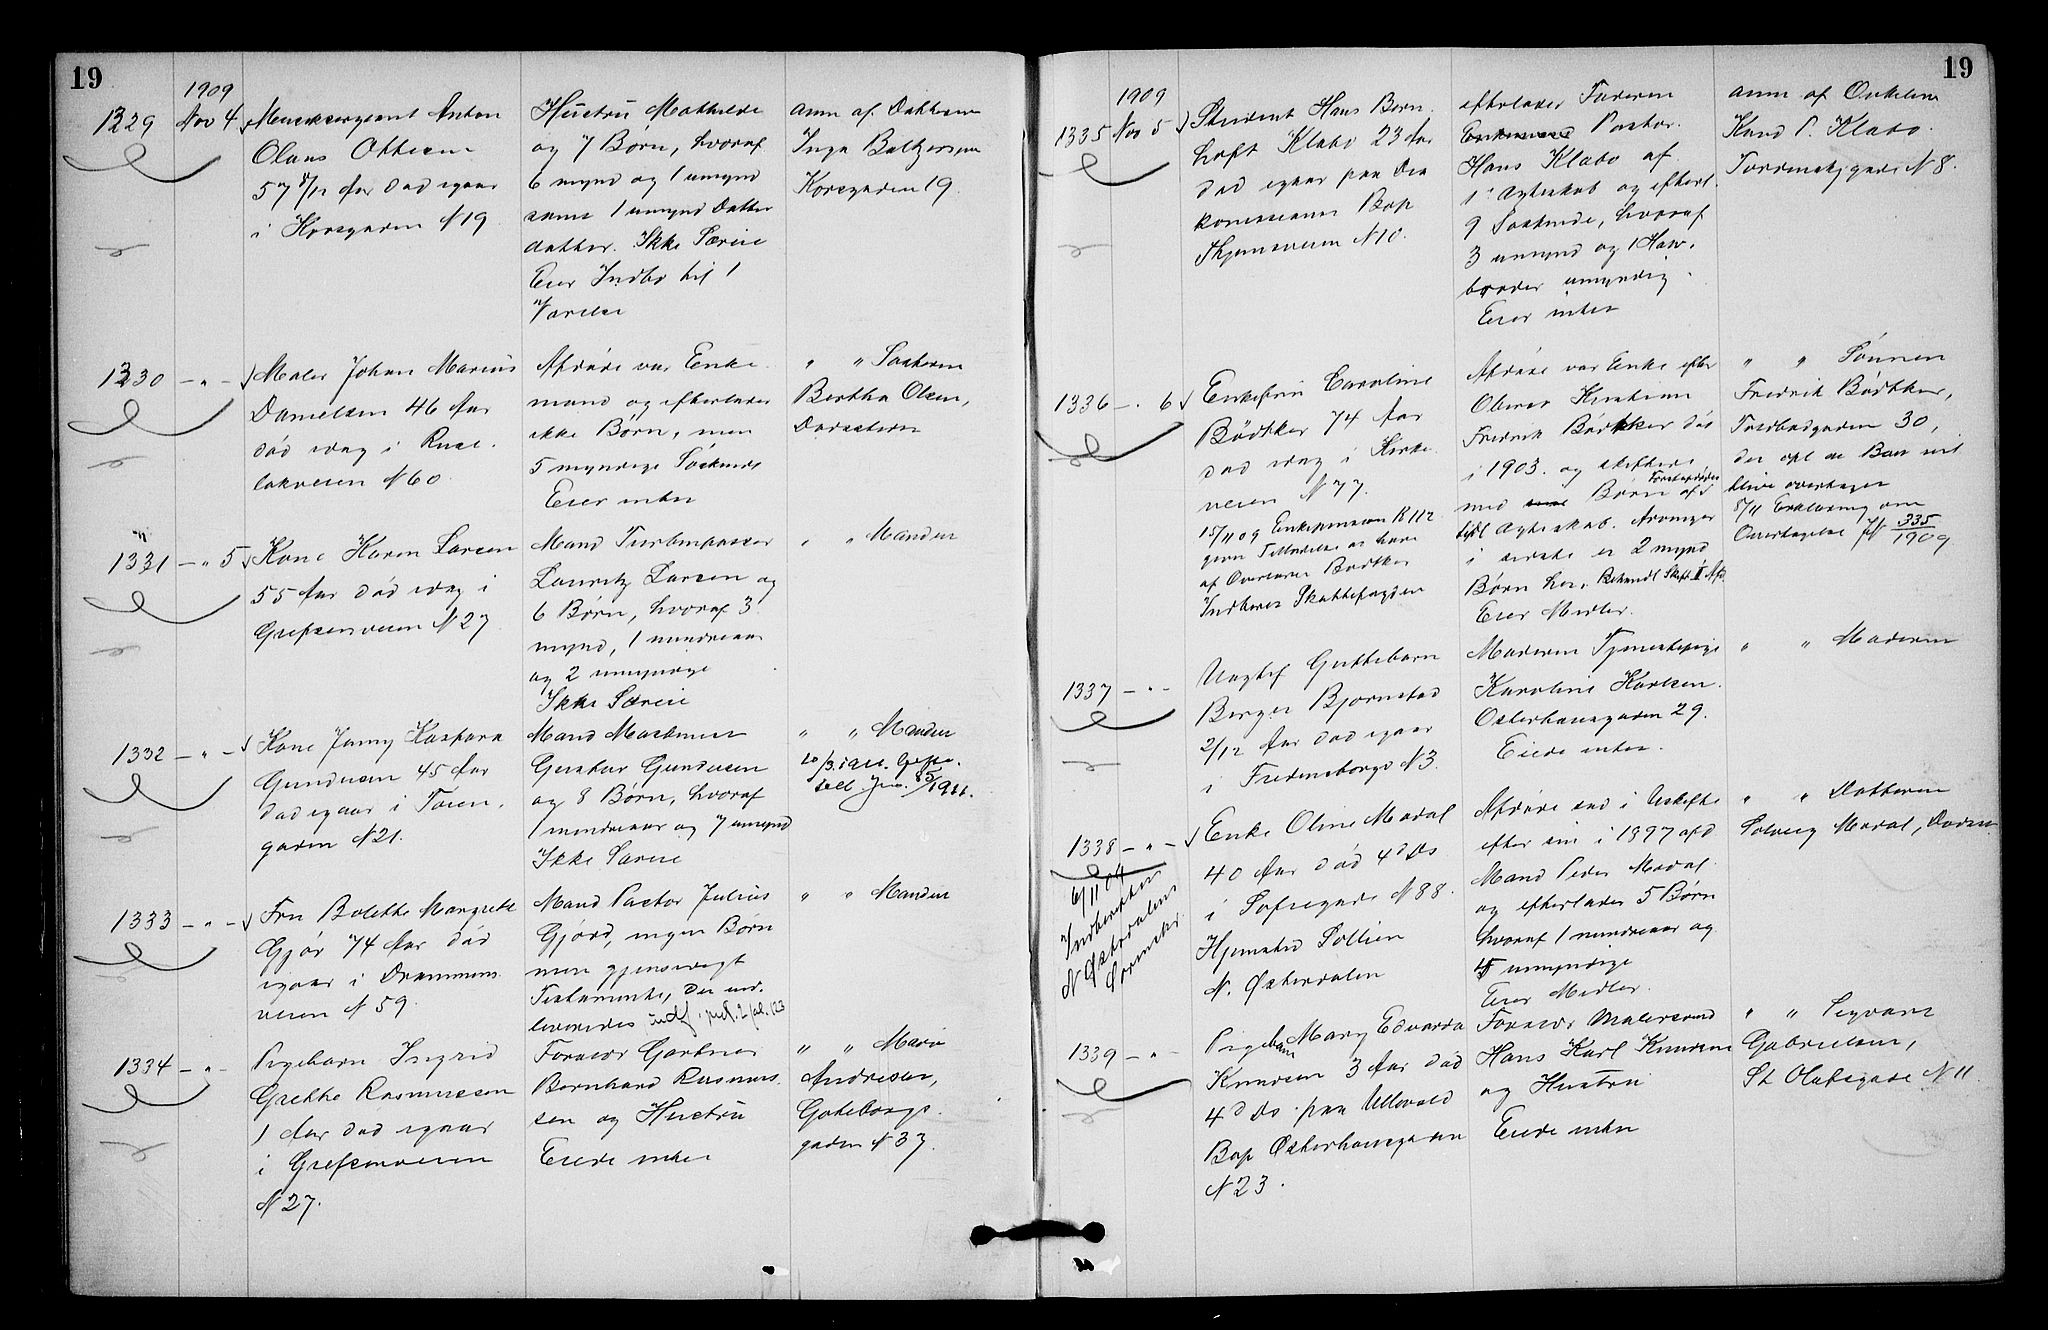 19
1909
1329 Nov 4 Musiksergeant Anton
Olaus Ottesen
57 8/12 Aar død igaar
i Korsgaden N 19
Hustru Mathilde
og 7 Børn, hvoraf
6 mynd og 1 umynd
samt 1 umynd Datter
datter. Ikke Særeie
Eier Indbo til 1
Værelse
anm af Datteren
Inga Baltzersen
Korsgaden 19.
1330 - " - Maler Johan Marius
Danielsen 46 Aar
død idag i Ruse
løkveien N 60
Afdøde var Enke
mand og efterlader
ikke Børn, men
5 myndige Søskende
Eier intet
" " Søsteren
Bertha Olsen,
Dødsstedet
1331 - " 5 Kone Karen Larsen
55 Aar død idag i
Grefsenveien N 27
Mand Turbinpasser
Lauritz Larsen og
6 Børn, hvoraf 3
mynd, 1 mindreaar
og 2 umyndige
Ikke Særeie
" " Manden
1332 - " - Kone Jenny Kaspara
Gundersen 45 Aar
død igaar i Toien
gaden N 21.
Mand Maskinist
Gustav Gundersen
og 8 Børn, hvoraf
1 mindreaar og 7 umynd
Ikke Særeie
" " Manden
1333 - " - Fru Bolette Margrete
Gjør 74 Aar død
igaar i Drammens
veien N 59.
Mand Pastor Julius
Gjørd, ingen Børn
men gjensidigt
Testamente, der ind
leveredes
" " Manden
1334 - " - Pigebarn Ingrid
Grethe Rasmussen
1 Aar død igaar
i Grefsenveien
N 27.
Forældr Gartner
Bernhard Rasmus
sen og Hustru
Eiede intet
" " Marie
Andresen,
Gøteborgs
gaden N 37.
19
1909
1335 Nov 5 Student Hans Born
hoft Klæbo 23 Aar
død igaar paa Dia
konissernes Bop
Thjemsveien N 10.
efterlader Faderen
Pastor
Hans Klæbo af
1' Ægteskab og efterl.
9 Søskende, hvoraf
3 umynd og 1 Halv
broder umyndig.
Eier intet
anm af Onkelen
Kand P. Klæbo
Tordenskj gade N 8.
1336 - " 6 Enkefru Caroline
Bødtker 74 Aar
død idag i Kirke
veien N 77.
15/11 09 Enkepension K 112
Indberet Skattefogden
Afdøde var Enke efter
Oberst Kristian
Fredrik Bødtker død
i 1903. og skiftede
med Børn af
Ægteskab. Arvinger
i sidste er 2 mynd
Børn her,
Eier Midler.
" " Sønnen
Fredrik Bødtker,
Toldbodgaden 30,
der opl at Boet vil
blive overtaget
8/11 Erklæring om
Overtagelse Jf 335/1909
1337 - " - Uægtef Guttebarn
Birger Bjørnstad
2/12 Aar død igaar
i Fredensborgv N 3.
Moderen Tjenestepige
Karoline Karlsen
Osterhausgaden 29.
Eiede intet.
" " Moderen
1338 - " - Enke Oline Modal
40 Aar død 4' ds
i Sofiegade N 88
Hjemsted Sollien
N. Østerdalen
6/11 09
Indberettet
N Østerdalens
Sorenskr.
Afdøde sad i Uskifte
efter sin i 1897 afd
Mand Peder Modal
og efterlader 5 Børn
hvoraf 1 mindreaar og
4 umyndige
Eier Midler.
" " Datteren
Solveig Modal, Dødsst
1339 - " - Pigebarn Mary Edvarda
Knudsen 3 Aar død
4' ds paa Ullevold
Bop Østerhausgaden
N 23.
Forældr Malersvend
Hans Karl Knudsen
og Hustru
Eiede intet
" " Sygvart
Gabrielsen,
St Olafsgade N 11